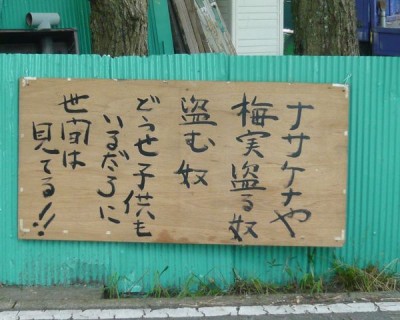 ナサケナや
梅実盗る奴
盗む奴
どうせ子供も
いるだろに
世間は
見てる!!